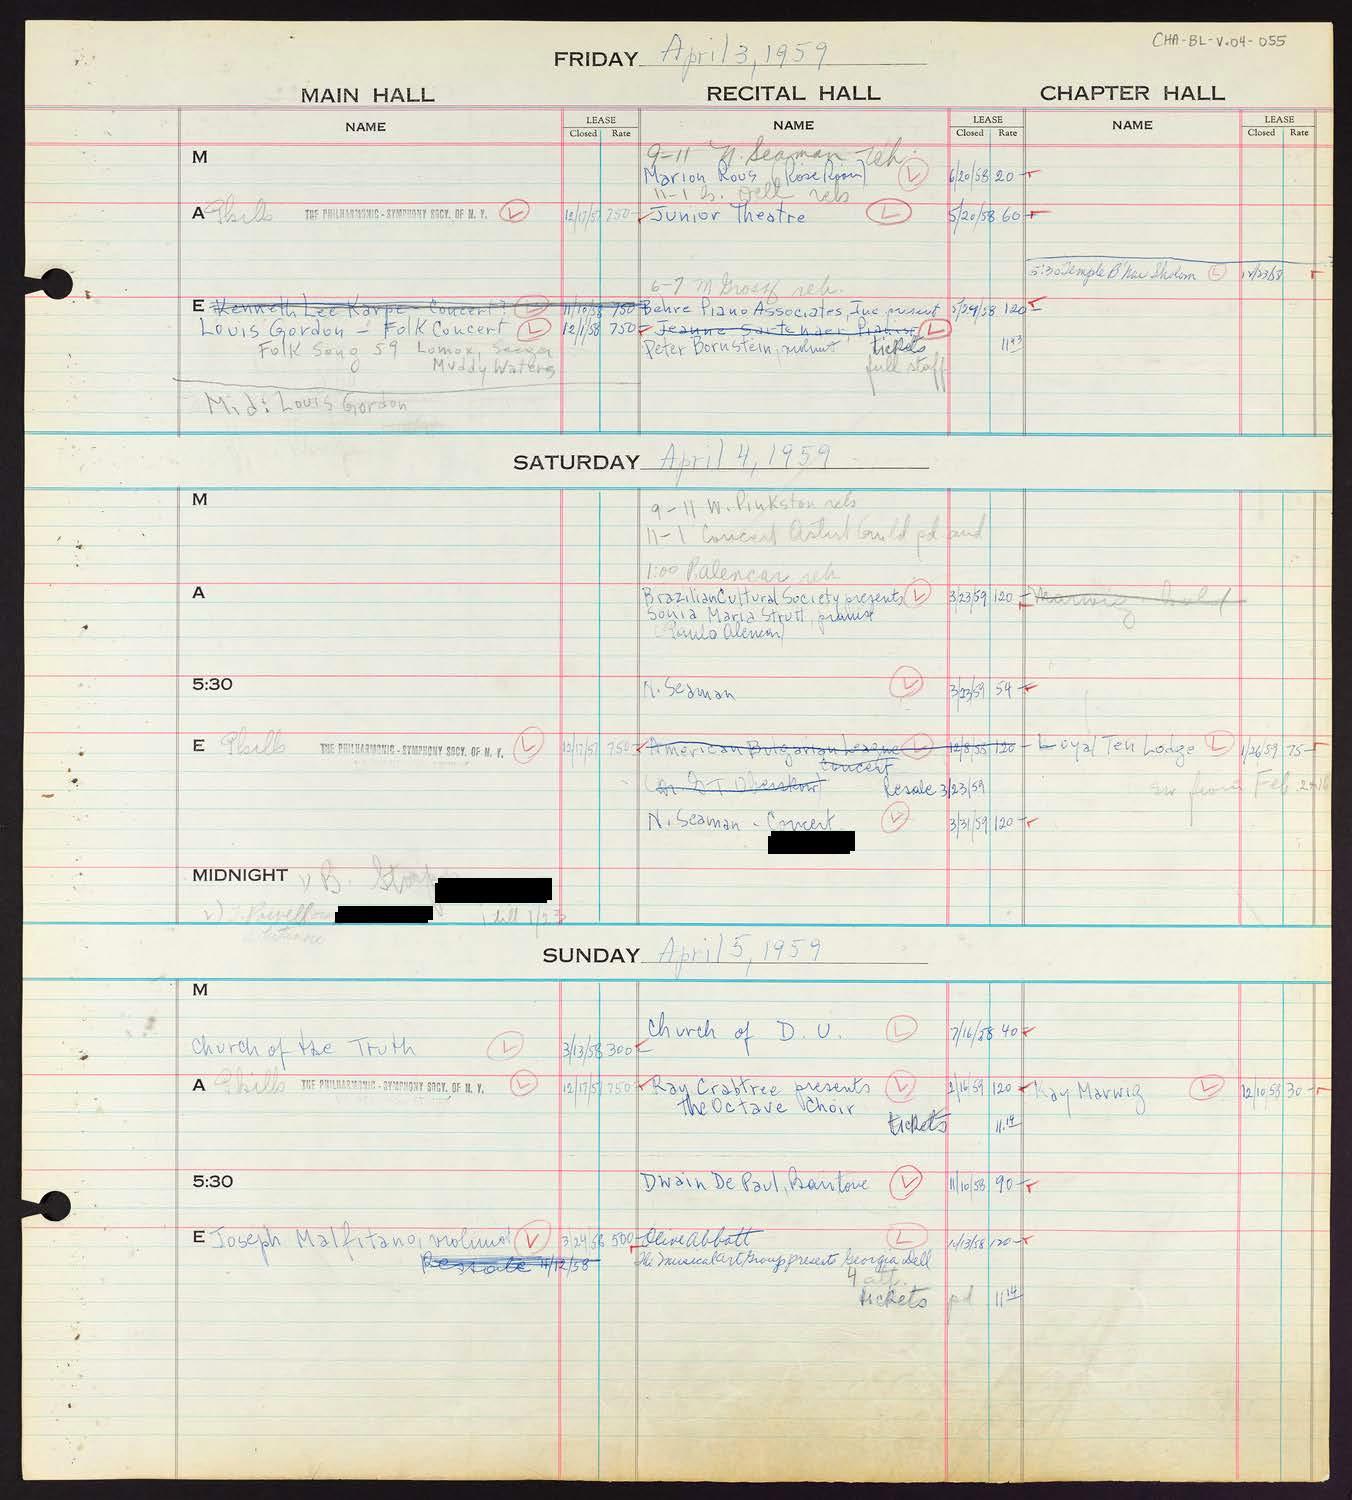 CHA-BL-V.04-055
FRIDAY April 3, 1959
MAIN HALL RECITAL HALL CHAPTER HALL
NAME LEASE Closed Rate NAME LEASE Closed Rate NAME LEASE Closed Rate
M
9-11 N. Seaman reh.
Marion Rous (Rose Room) L 6/20/58 20
11-1 G. Dell reh
A Phills THE PHILHARMONIC-SYMPHONY SOCY. OF N. Y. L 12/17/57 750 Junior Theatre L 5/20/58 60
5:30 Temple B'nai Sholom L 12/23/58
6-7 M Gross reh.
E Kenneth Lee Karpe - Concert? L 11/10/58 750 Behre Piano Associates, Inc present 5/29/58 120
Louis Gordon - Folk Concert L 12/1/58 750 Jeanne Pianist L
Folk Song 59 Lomax, Seeger Peter Bornstein, tickets 11.43
Muddy Waters full staff
Mid: Louis Gordon
SATURDAY April 4, 1959
M
9-11 W. Pinkston reh
11-1 Concert Artist Guild pd and
1:00 P. Alencar reh
A Brazilian Cultural Society presents L 3/23/59 120 Marwig hold
Sonia Maria Strutt, pianist
(Paulo Alencar)
5:30 N. Seaman L 3/23/59 54
E Phills THE PHILHARMONIC-SYMPHONY SOCY. OF N. Y. L 12/17/57 750 American Bulgarian League L 12/8/58 120 Loyal Ten Lodge L 1/26/59 75
Concert
Resale 3/23/59 from Feb.
N. Seaman - Concert L 3/31/59 120
MIDNIGHT 1) B.
2) till 1/23
SUNDAY April 5, 1959
M
Church of D. U. L 7/16/58 40
Church of the Truth L 3/13/58 300
A Phills THE PHILHARMONIC-SYMPHONY SOCY. OF N. Y. L 12/17/57 750 Ray Crabtree presents L 2/16/59 120 Kay Marwig L 12/10/58 30
the Octave Choir
tickets 11.14
5:30 Dwain De Paul, Baritone L 11/10/58 90
E Joseph Malfitano, violinist L 3/24/58 500 Olive Abbott L 11/13/58 120
Resale 11/12/58 The Musical Art Group presents Georgia Dell
4 att.
tickets pd 11.14